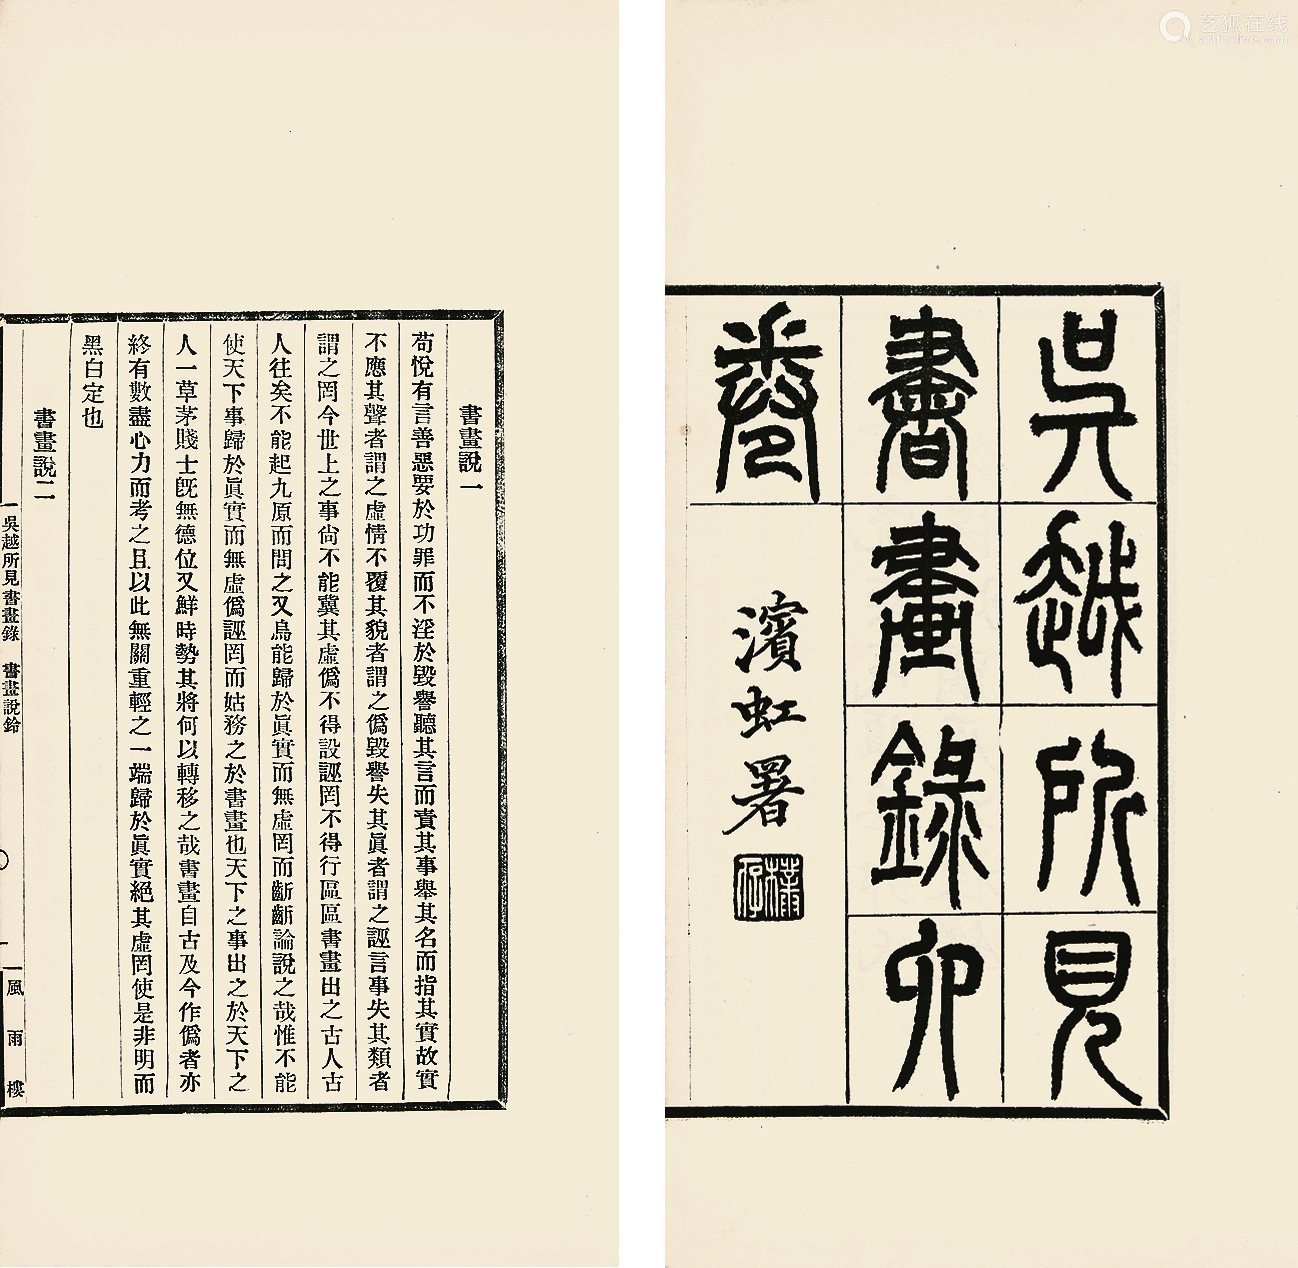 吳越所見
書畫錄六
卷
濱虹署
樸存
書畫說一
苟悅有言善惡要於功罪而不淫於毀譽聽其言而責其事舉其名而指其實故實
不應其聲者謂之虛情不覆其貌者謂之僞毀譽失其眞者謂之誣言事失其類者
謂之罔今世上之事尙不能冀其虛僞不得設誣罔不得行區區書畫出之古人古
人往矣不能起九原而問之又烏能歸於眞實而無虛罔而齗齗論說之哉惟不能
使天下事歸於眞實而無虛僞誣罔而姑務之於書畫也天下之事出之於天下之
人一草茅賤士旣無德位又鮮時勢其將何以轉移之哉書畫自古及今作僞者亦
終有數盡心力而考之且以此無關重輕之一端歸於眞實絕其虛罔使是非明而
黑白定也
書畫說二
吳越所見書畫錄 書畫說鈴
一
風雨樓
艺狐在线
artfoxlive.com